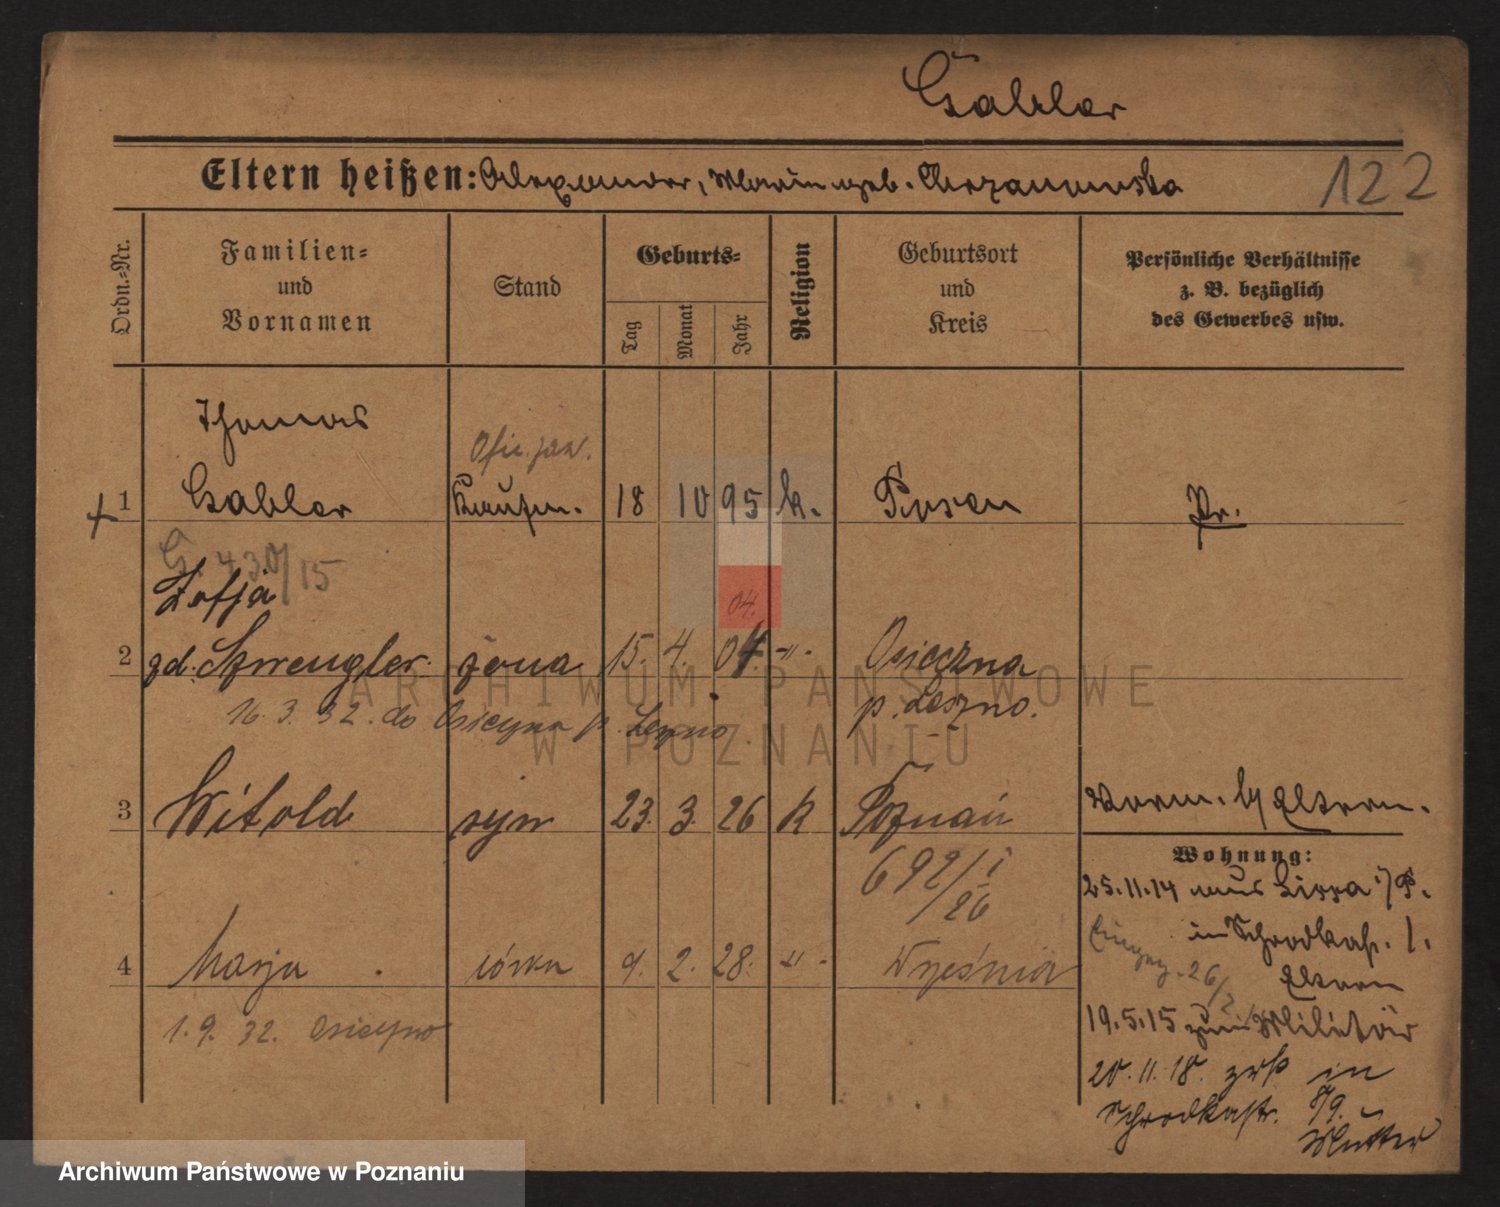 Gabler
Eltern heißen: Alexander, Maria geb. Chrzanowska
122
Ordn.-Nr.
Familien-
und
Vornamen
Stand
Geburts-
Tag
Monat
Jahr
Religion
Geburtsort
und
Kreis
Persönliche Verhältnisse
z. B. bezüglich
des Gewerbes usw.
Thomas
Ofic. jaz.
+ 1 Gabler Kaufm. 18 10 95 k. Posen Pr.
G. 430/15
Zofja
04.
2 zd. Szwengler żona 15. 4. 04. -"- Osieczna
p. Leszno.
16. 3. 32. do Osieczna p. Leszno
3 Witold syn 23. 3. 26 k Poznań
692/I
/26
Vorm. by Eltern.
Wohnung:
25.11.14 aus Lissa i/P.
in Schrodkastr. 1.
Eltern
4 Marja córka 9. 2. 28. -"- Września
1. 9. 32. Osieczno
19.5.15 zum Militär
20.11.18. zrk in
Schrodkastr. 8/9.
Mutter
ARCHIWUM PAŃSTWOWE
W POZNANIU
Archiwum Państwowe w Poznaniu